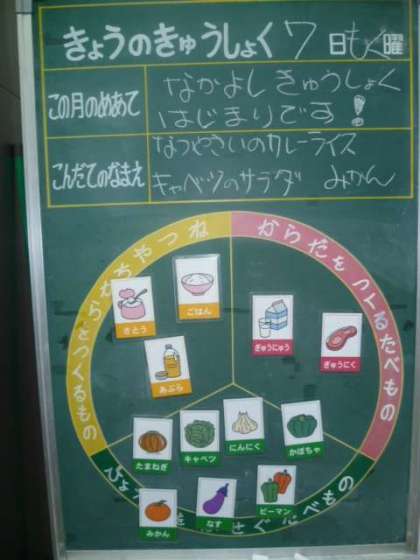 きょうのきゅうしょく 7日もく曜
この月のめあて
なかよしきゅうしょく
はじまりです!
こんだてのなまえ
なつやさいのカレーライス
キャベツのサラダ みかん
ねつやちからをつくるもの
からだをつくるたべもの
さとう
ごはん
あぶら
ぎゅうにゅう
ぎゅうにく
たまねぎ
キャベツ
にんにく
かぼちゃ
みかん
なす
ピーマン
べもの